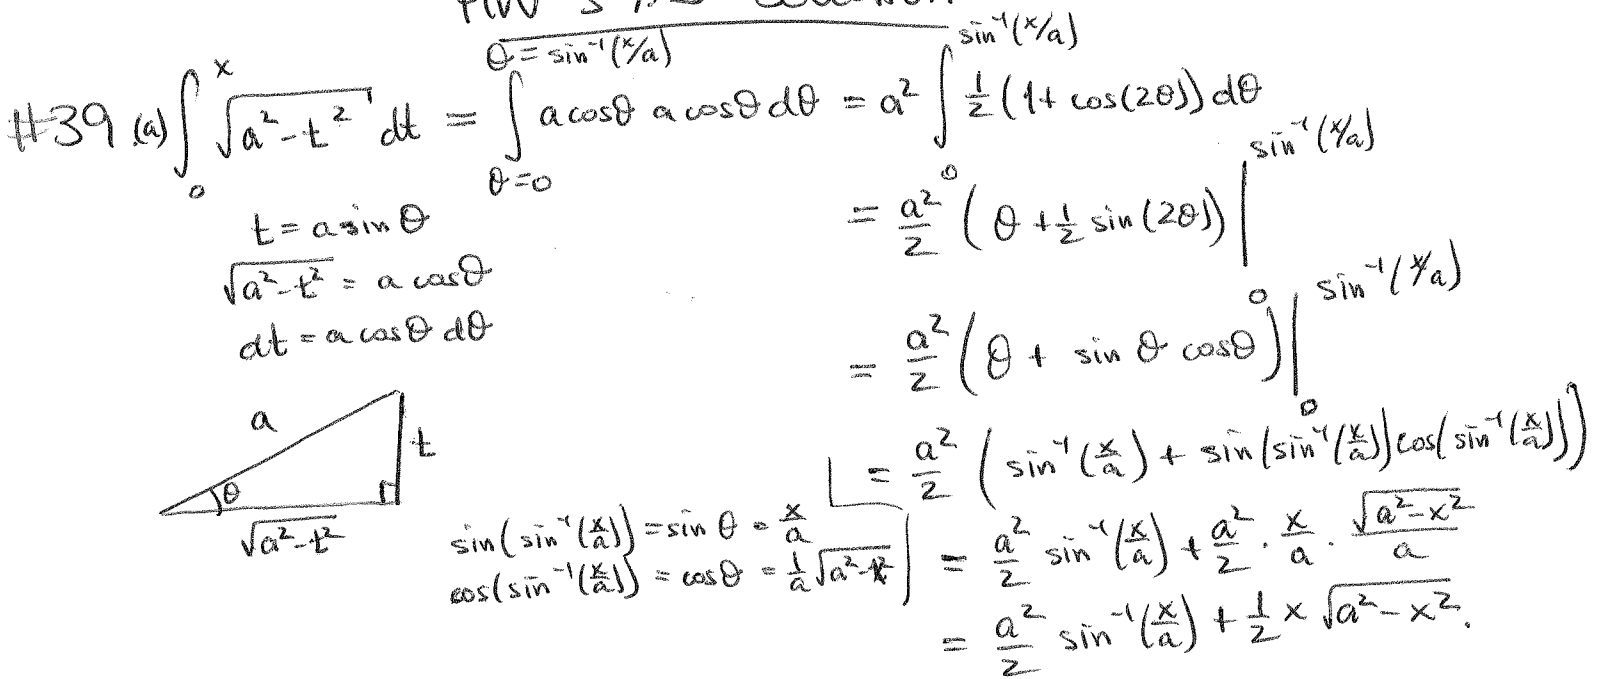 #39 (a) ∫₀ˣ √(a²-t²) dt = ∫_{θ=0}^{θ=sin⁻¹(x/a)} a cosθ a cosθ dθ = a² ∫₀^{sin⁻¹(x/a)} ½(1+cos(2θ)) dθ
= a²/2 (θ + ½ sin(2θ)) |₀^{sin⁻¹(x/a)}
t = a sin θ
√(a²-t²) = a cosθ
dt = a cosθ dθ
= a²/2 (θ + sin θ cosθ) |₀^{sin⁻¹(x/a)}
a
t
θ
√(a²-t²)
= a²/2 (sin⁻¹(x/a) + sin(sin⁻¹(x/a)) cos(sin⁻¹(x/a)))
sin(sin⁻¹(x/a)) = sin θ = x/a
cos(sin⁻¹(x/a)) = cosθ = 1/a √(a²-x²)
= a²/2 sin⁻¹(x/a) + a²/2 · x/a · √(a²-x²)/a
= a²/2 sin⁻¹(x/a) + ½ x √(a²-x²).